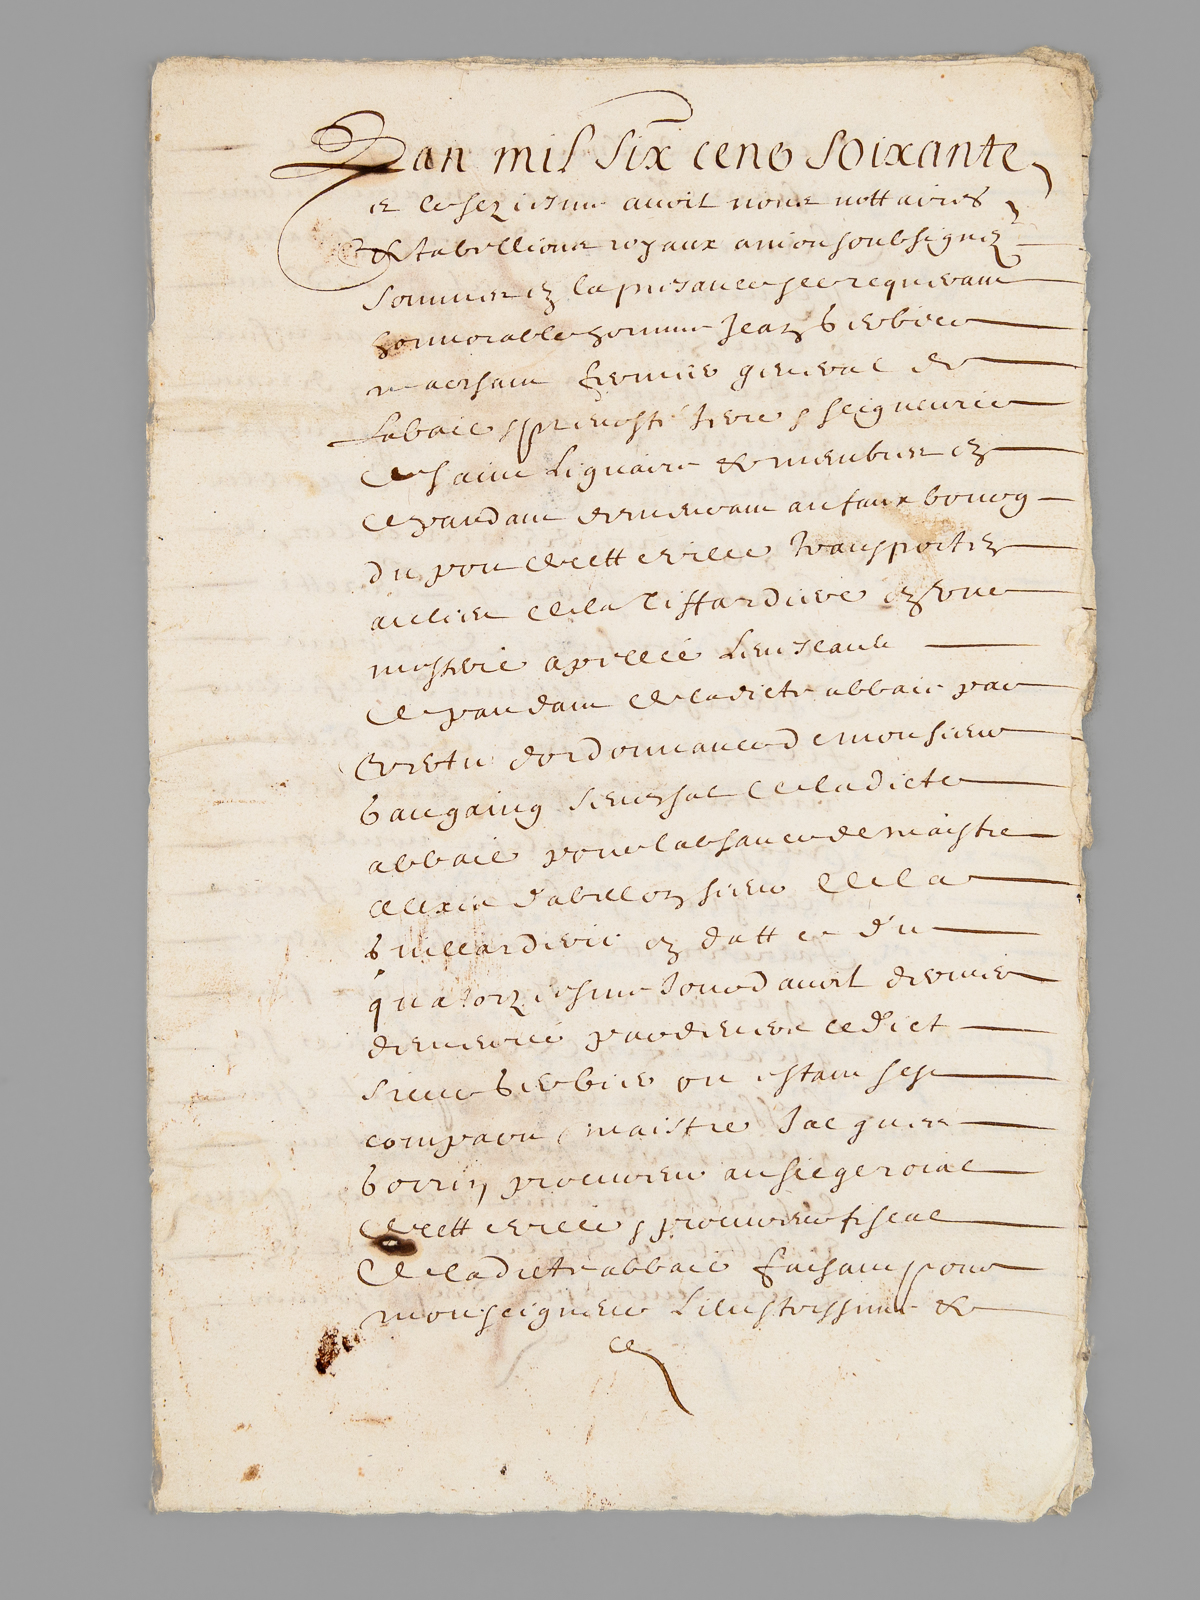 Lan mil six cens soixante
et le seziesme avril nous nottaires
& tabellions royaux a niort soubsignez
sommes en la presance & ce requerant
honnorable homme Jean Berbier
marchant fermier general de
labaie prevosté terre & seigneurie
de saint Liguaire & menbres en
depandant demeurant au faux bourg
du pon de cette ville transportez
au lieu de la Tiffardiere en une
mesterie apellee
depandant de la dicte abbaie par
vertu dordonnance de monsieur
Baugaing senechal de la dicte
abbaie pour labsance de maistre
sieur de la
en datte du
quatorziesme Jour davril dernier
par devers le dict
sieur Berbier ou estant sest
comparu maistre Jacques
procureur au siege roial
de cette ville & procureur fiscal
de la dicte abbaie faisant pour
monseigneur Lilustrissime &